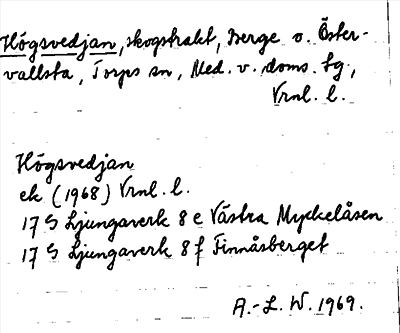 Högsvedjan, skogstrakt, Berge o. Öster-
vallsta, Torps sn, Med. v. doms. tg,
Vrnl. l.
Högsvedjan
ek (1968) Vrnl. l.
17 G Ljungaverk 8 e Västra Myckelåsen
17 G Ljungaverk 8 f Finnåsberget
A.-L. W. 1969.